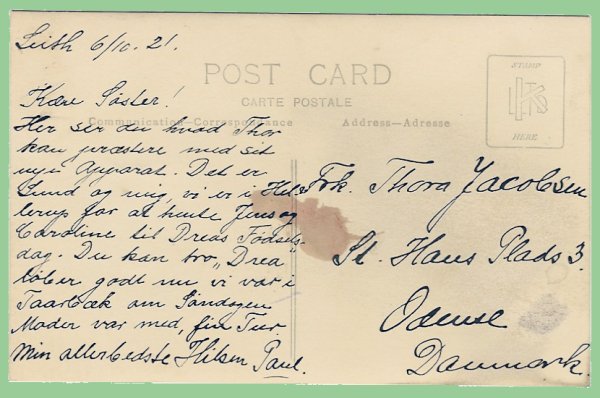 Leith 6/10. 21.
POST CARD
CARTE POSTALE
Communication—Correspondance
Address—Adresse
STAMP
HERE
Kære Søster!
Her ser du hvad Thor
kan præstere med sit
nye Apparat. Det er
Lund og mig, vi er i Hel-
lerup for at hente Jens og
Caroline til Dreas Fødsels-
dag. Du kan tro „Drea"
løber godt nu vi var i
Taarbæk om Søndagen
Moder var med, fin Tur.
Min allerbedste Hilsen Paul.
Frk. Thora Jacobsen
St. Hans Plads 3.
Odense
Danmark.